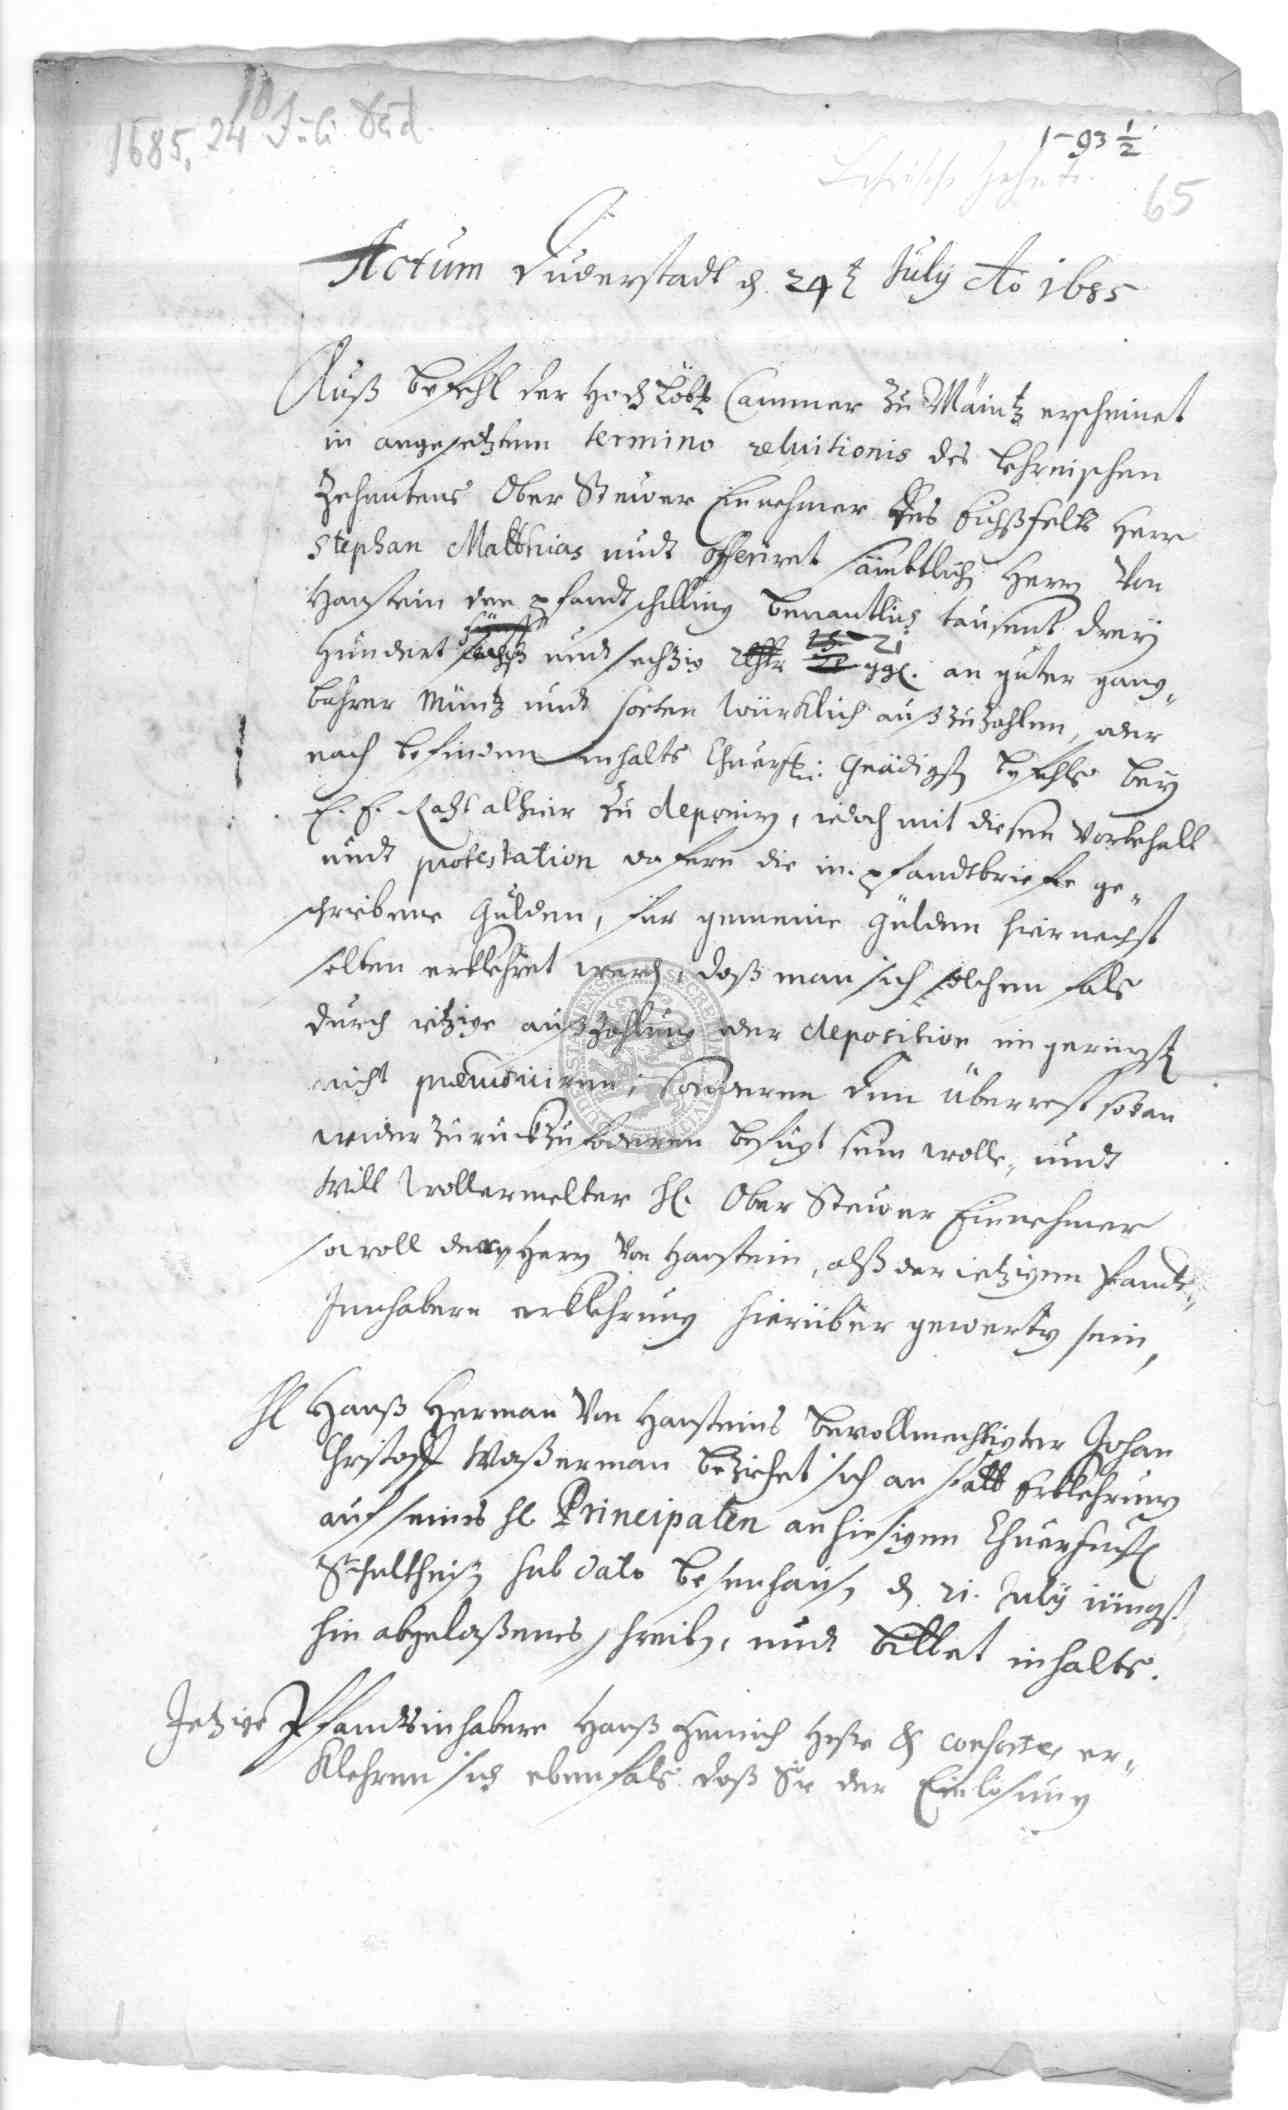 1685, 24 Juli Dud.
1-93 1/2
65
Actum Duderstadt d. 24t July Ao 1685
Auß befehl der Hochlöbl. Cammer zu Mäintz erscheinet
in angesetztem termino reluitionis des Lehrnischen
Zehentens Ober Steuer Einnehmer des Eichßfelts Herr
Stephan Matthias undt offeriret sämbtlich Herrn von
Hanstein den pfandtschilling benantlich tausent dreÿ
Hundert fünff und sechzig Rthlr 21 ggl. an guter gang„
bahrer Müntz und sorten würklich außzuzahlen, oder
nach befinden inhalts Churfl: Gnädigst befehls beÿ
E. E. Raht alhier zu deponirn, iedoch mit diesem Vorbehalt
undt protestation dafern die in pfandtbriefe ge„
schriebene Gülden, für gemeine Gülden hiernechst
solten erklehret werden, daß man sich solchen fals
durch ietzige außzahlung oder deposition im geringst
nicht præiudiciren, sonderen den Überrest sodan
wider zurückzuforderen befugt sein wolle, undt
will wollermelter H. Ober Steuer Einnehmer
sowoll der Herrn von Hanstein, alß der ietzigen Pfandts„
Innhabern erklehrung hierüber gewertig sein,
H Hanß Herman von Hansteins bevollmechtigter Johan
Christoff Waßerman beziehet sich an statt Erklehrung
auf seines H Principalen an hiesigen Churfürstl
Schultheiß sub dato Besenhausen d. 21. Julÿ iüngst
hin abgelaßenes schreiben, undt bittet inhalts.
Jetzige Pfandtsinhabere Hanß Henrich Hesse & consorten er„
klehren sich ebenfals daß Sie der Einlösung